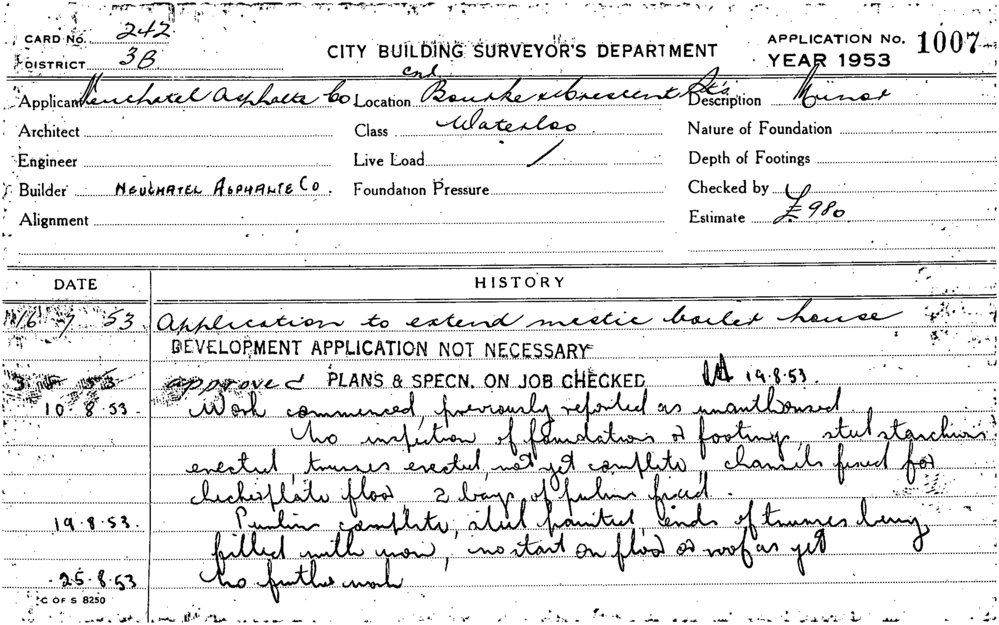 CARD No. 242
DISTRICT 3B
CITY BUILDING SURVEYOR'S DEPARTMENT
APPLICATION No. 1007
YEAR 1953
Applicant Neuchatel Asphalte Co Location cnr Bourke & Crescent Sts Description Minor
Architect Class Waterloo Nature of Foundation
Engineer Live Load / Depth of Footings
Builder NEUCHATEL ASPHALTE CO. Foundation Pressure Checked by
Alignment Estimate £980
DATE HISTORY
16 7 53 Application to extend mastic boiler house
DEVELOPMENT APPLICATION NOT NECESSARY
approved PLANS & SPECN. ON JOB CHECKED 19.8.53.
10.8.53. Work commenced, previously reported as unauthorised
No inspection of foundations or footings, steel stanchions
erected, trusses erected, not yet complete channels fixed for
checkerplate floor 2 bays of purlins fixed.
19.8.53. Purlins complete, steel painted ends of trusses being
filled with iron, no start on floor or roof as yet
25.8.53 No further work
C OF S 8250